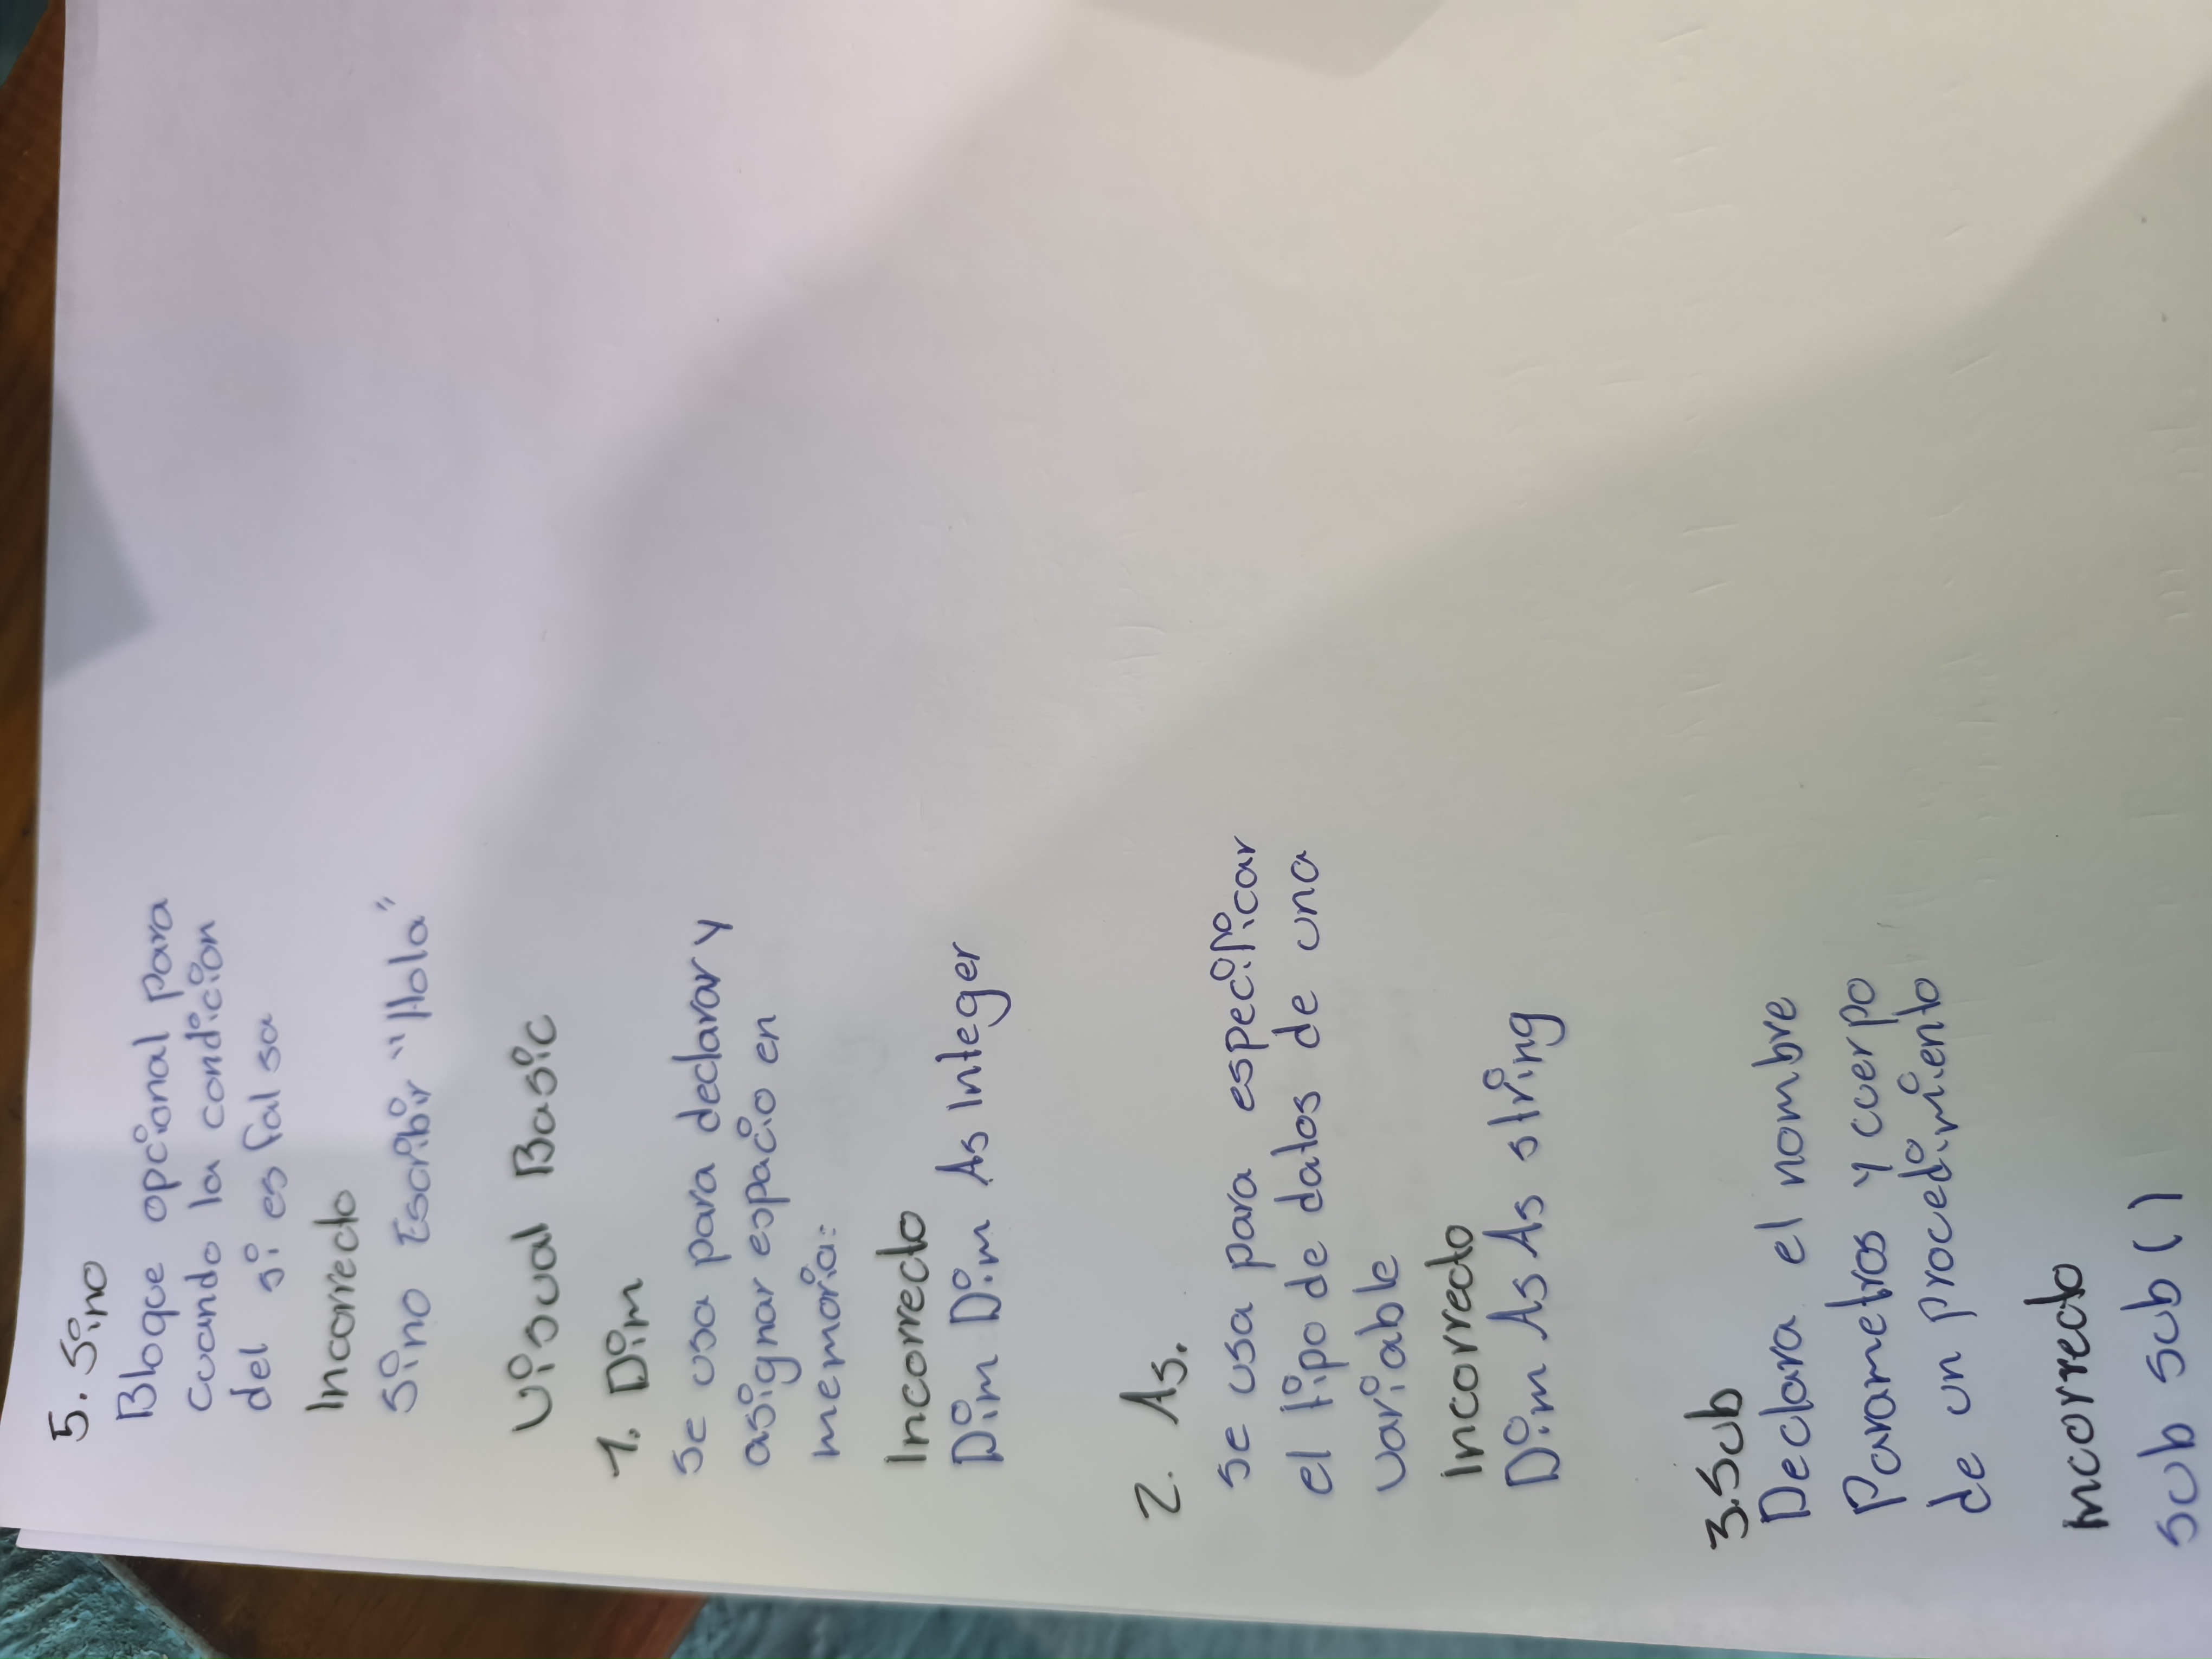 5. Sino
Bloque opcional para
cuando la condicion
del si es falsa
Incorrecto
Sino Escribir "Hola"
Visual Basic
1. Dim
Se usa para declarar y
asignar espacio en
memoria:
Incorrecto
Dim Dim As Integer
2. As.
Se usa para especificar
el tipo de datos de una
variable
Incorrecto
Dim As As string
3. Sub
Declara el nombre
Parametros y cuerpo
de un procedimiento
Incorrecto
Sub Sub ()